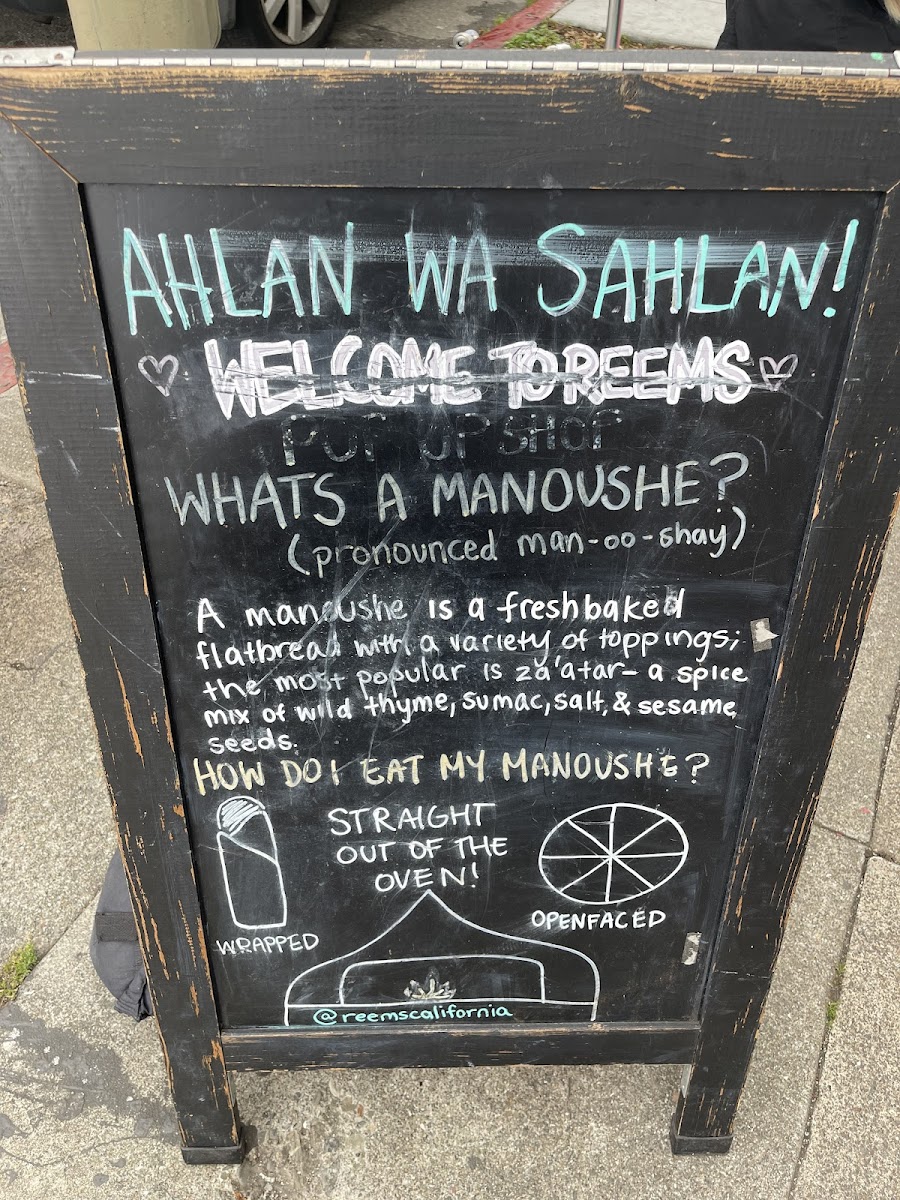 AHLAN WA SAHLAN!
WELCOME TO REEMS
POP UP SHOP
WHATS A MANOUSHE?
(pronounced man-oo-shay)
A manoushe is a freshbaked
flatbread with a variety of toppings;
the most popular is za'atar- a spice
mix of wild thyme, sumac, salt, & sesame
seeds.
HOW DO I EAT MY MANOUSHE?
STRAIGHT
OUT OF THE
OVEN!
WRAPPED
OPENFACED
@reemscalifornia